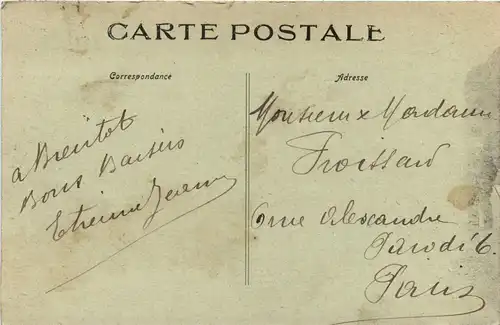 CARTE POSTALE
Correspondance
a Bientot
Bons Baisers
Etienne
Adresse
Monsieur x Madame
Froissard
6 rue Alexandre
Parodi 6
Paris